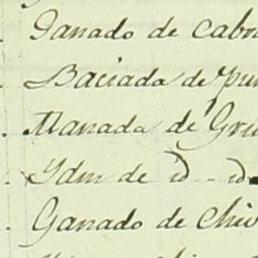 Ganado de cabr
Baciada de pu
Manada de Gru
Ydm de id - id
Ganado de Chiv